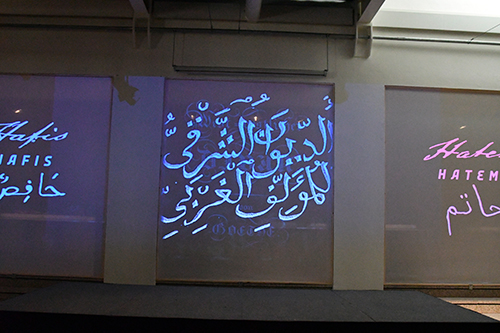 Hafis
HAFIS
حَافِظ
أَلدِّيوَانُ الشَّرْقِيُّ
لِلْمُؤَلِّفِ الْغَرْبِيِّ
Hatem
HATEM
حاتم